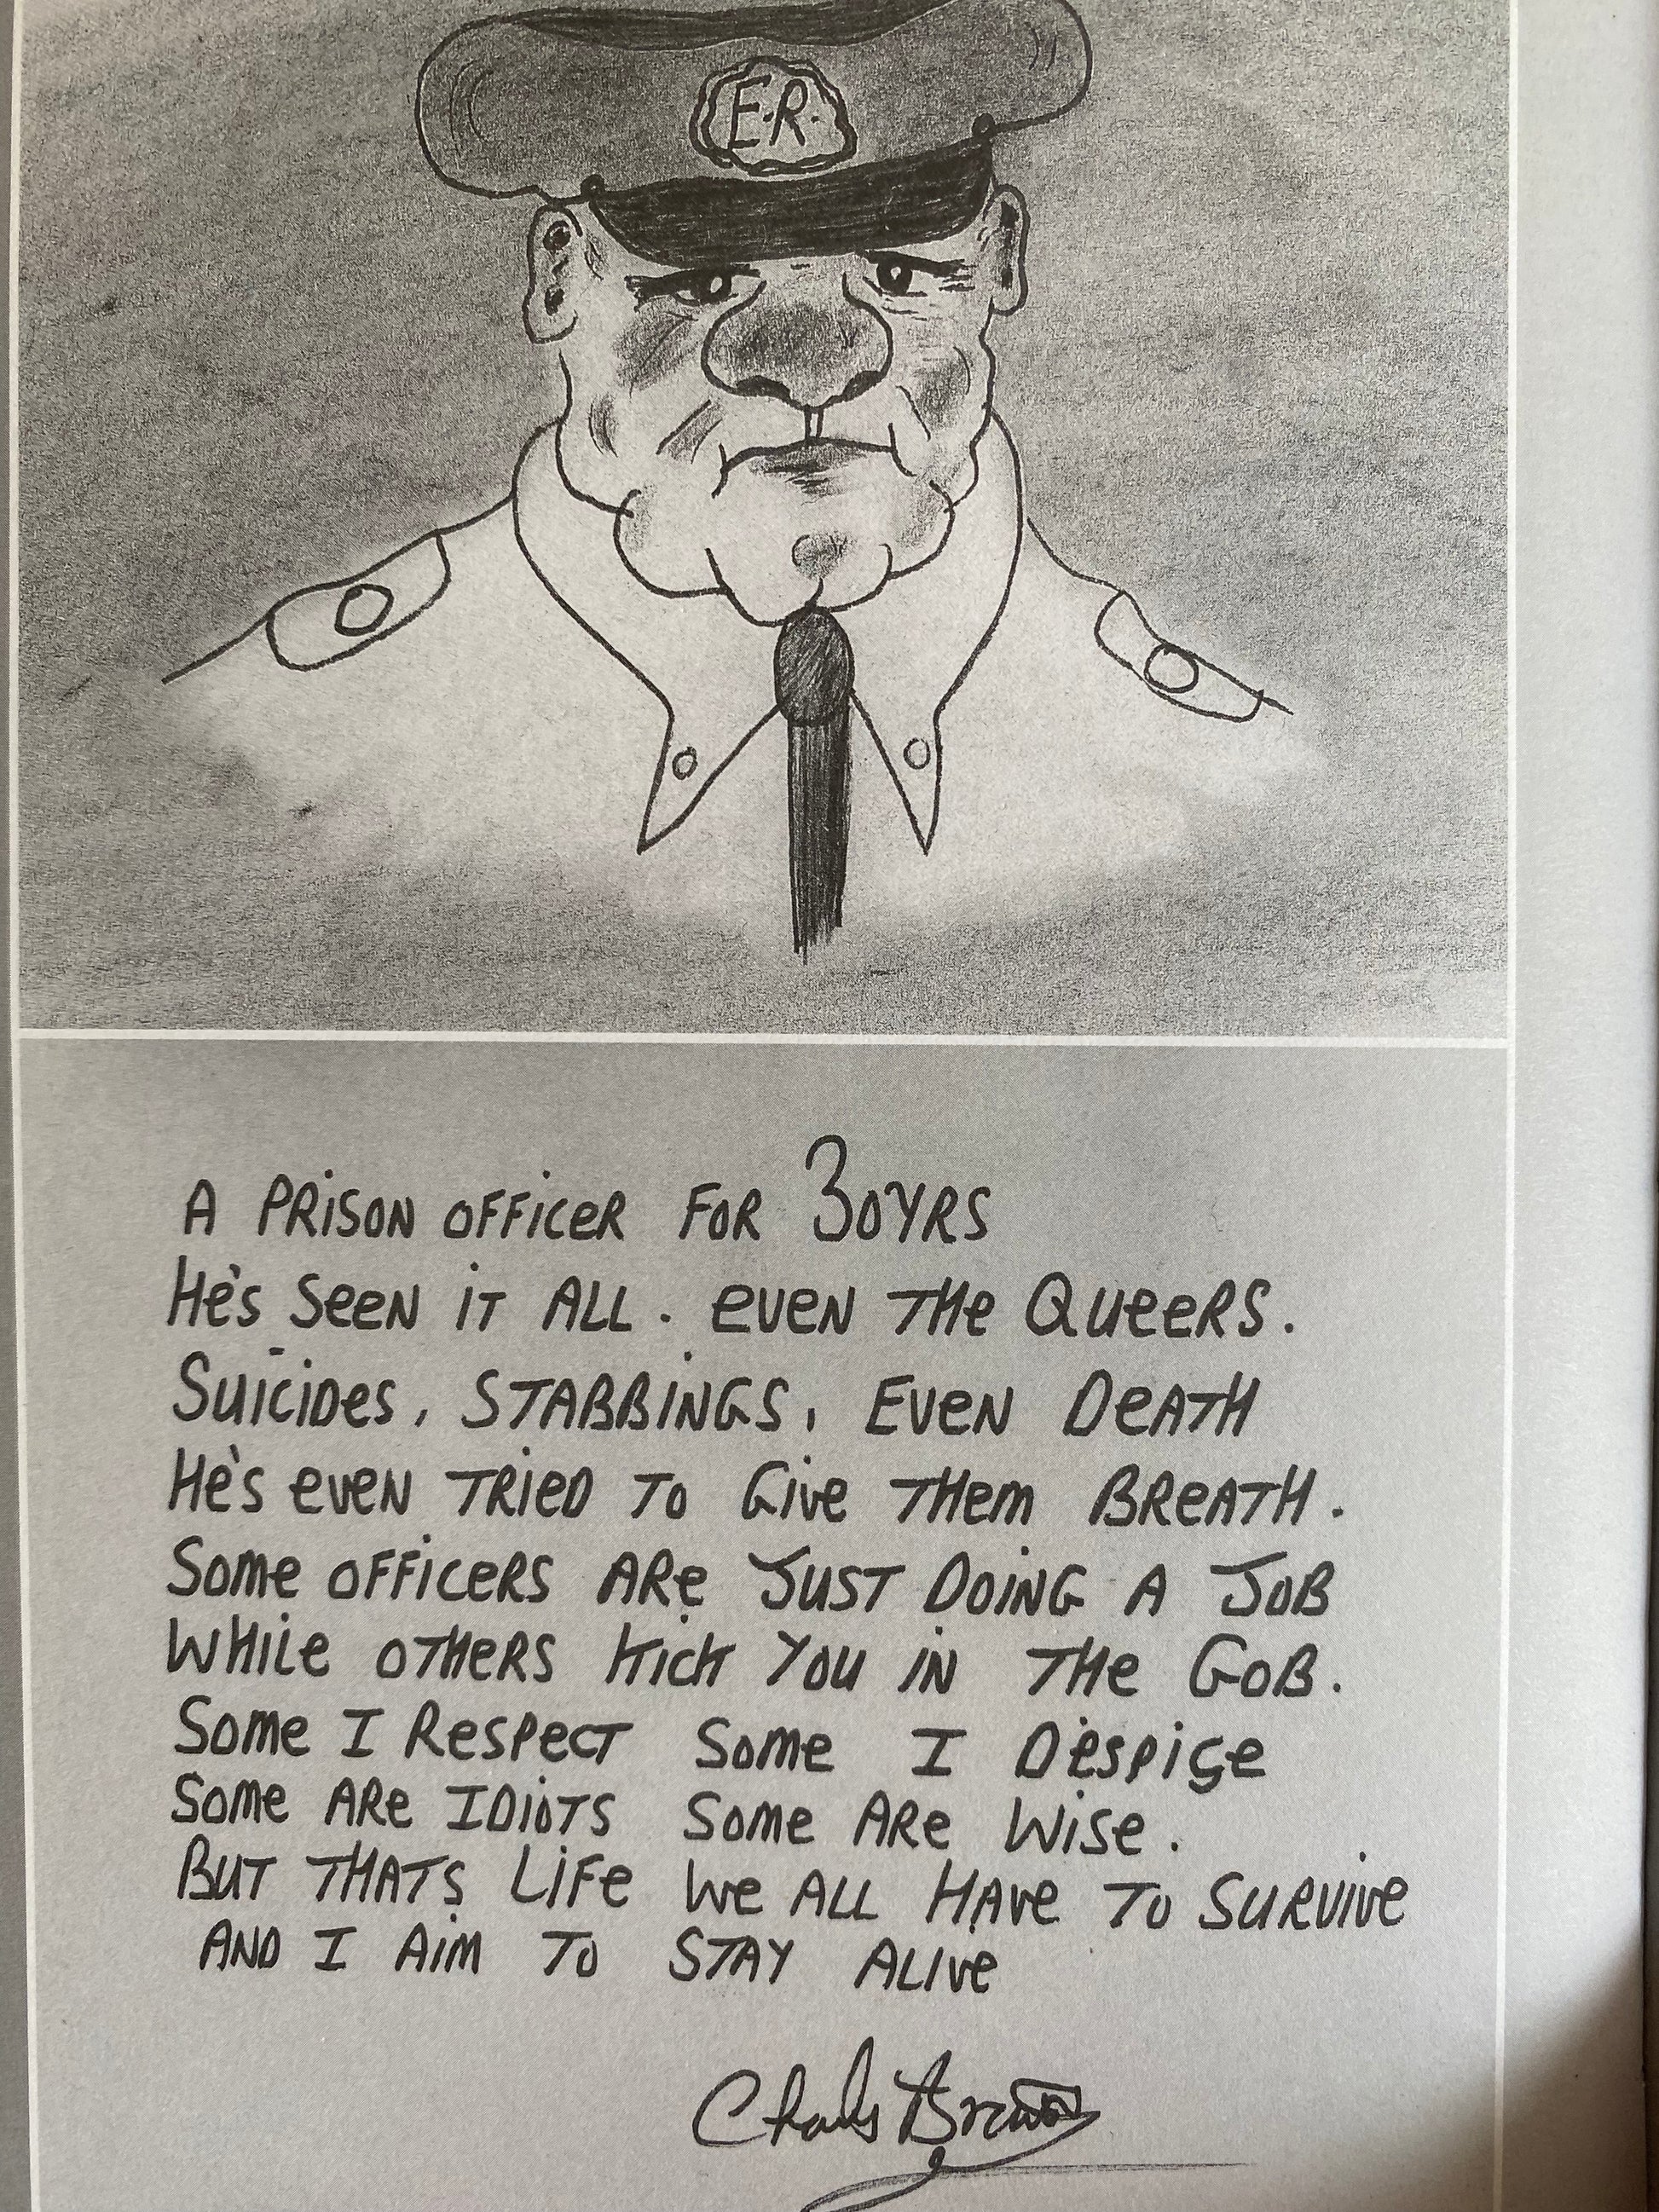 E.R.
A PRISON OFFICER FOR 30YRS
He's Seen IT ALL. even THe QueeRS.
Suicides, STABBINGS, Even DeATH
He's even TRIED TO Give THem BReATH.
Some OFFICERS ARe JUST DOING A JOB
WHile OTHeRS KicK You iN THe GoB.
Some I Respect Some I Despise
Some ARe IDiOTS Some ARe Wise.
BUT THATS LiFe We ALL HAve To SuRvive
AND I Aim To STAY ALive
Charles Bronson